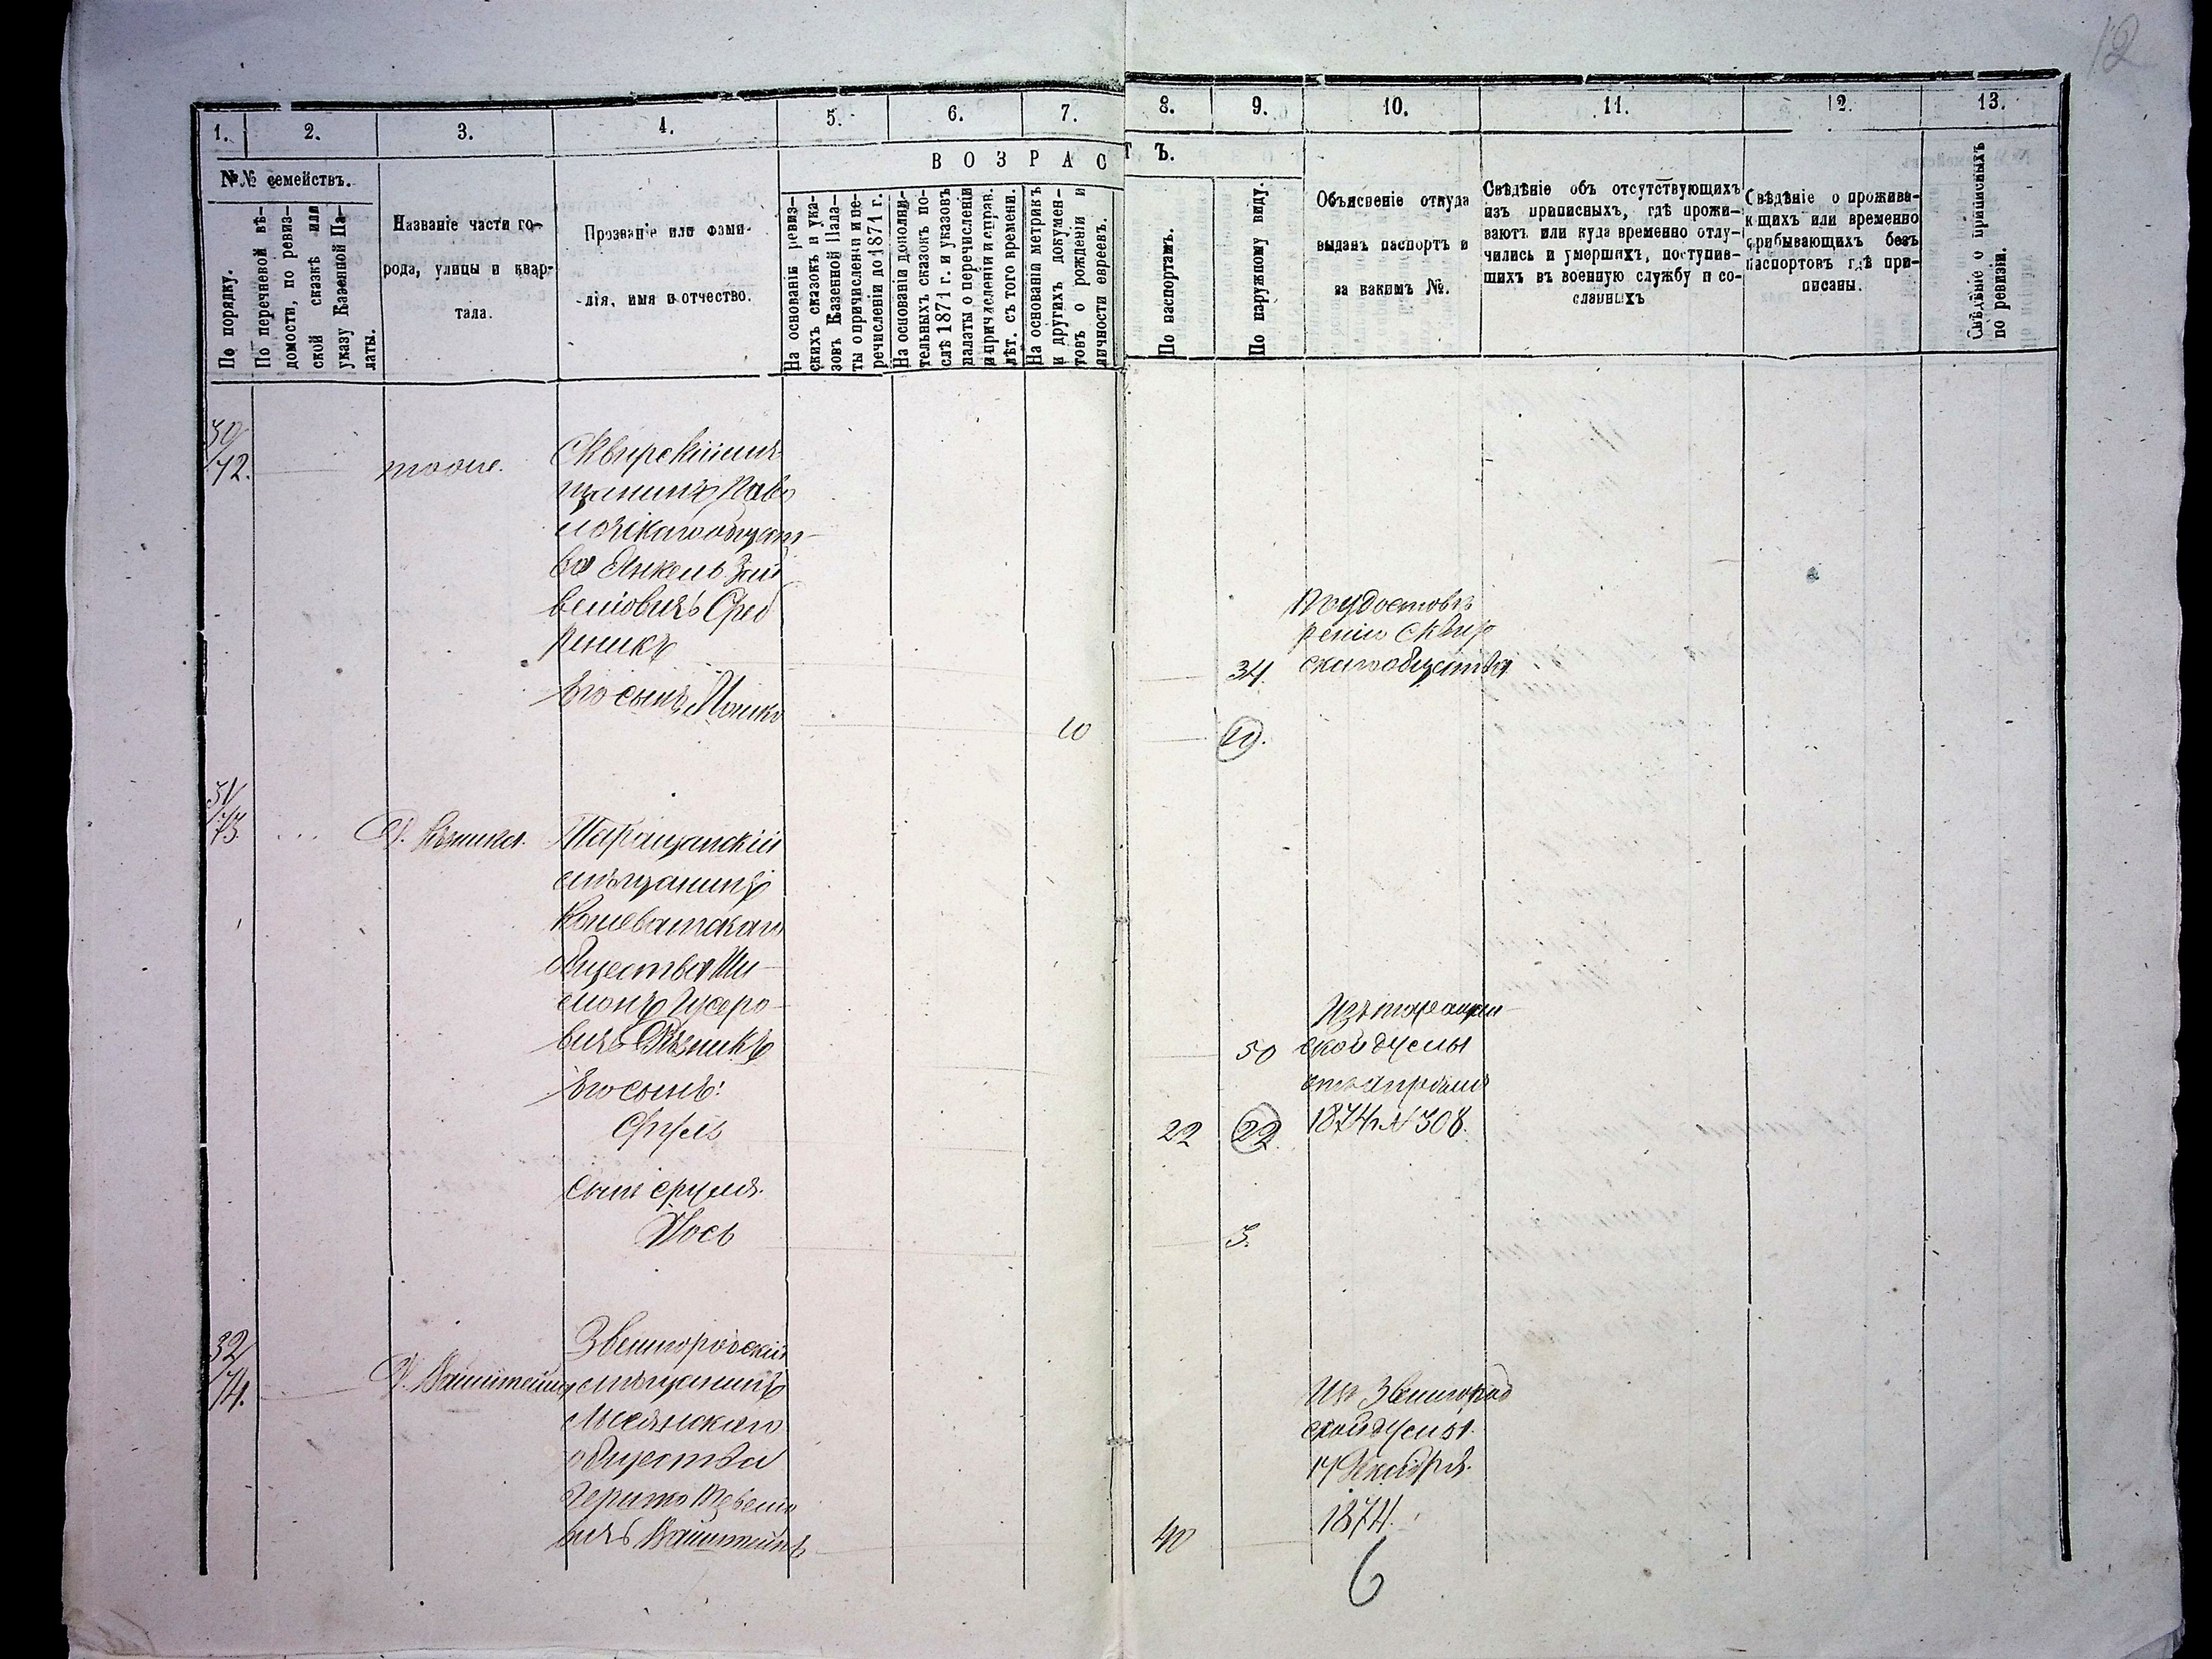 12
1. 2. 3. 4. 5. 6. 7. 8. 9. 10. 11. 12. 13.
В О З Р А С Т Ъ.
№№ семействъ.
По порядку.
По перечневой вѣ-
домости, по ревиз-
ской сказкѣ или
указу Казенной Па-
латы.
Названіе части го-
рода, улицы и квар-
тала.
Прозваніе или фами-
лія, имя и отчество.
На основаніи ревиз-
скихъ сказокъ и ука-
зовъ Казенной Пала-
ты о причисленіи и пе-
речисленіи до 1871 г.
На основаніи дополни-
тельныхъ сказокъ по-
слѣ 1871 г. и указовъ
палаты о перечисленіи
и причисленіи и справ.
лѣт. съ того времени.
На основаніи метрикъ
и другихъ докумен-
товъ о рожденіи и
личности евреевъ.
По паспортамъ.
По наружному виду.
Объясненіе откуда
выданъ паспортъ и
за какимъ №.
Свѣдѣніе объ отсутствующихъ
изъ приписныхъ, гдѣ прожи-
ваютъ или куда временно отлу-
чились и умершихъ, поступив-
шихъ въ военную службу и со-
сланныхъ
Свѣдѣніе о прожива-
ющихъ или временно
прибывающихъ безъ
паспортовъ гдѣ при-
писаны.
Свѣдѣніе о приписныхъ
по ревизіи.
30/72.
тоже.
Сквирскій мѣ-
щанинъ Паво
лочскаго общест-
ва Янкель Зей
веліовичъ Сред
реникъ
34.
По удостовѣ
ренію Сквир
скаго общества
Его сынъ Мошко
10
10.
31/73
Д. Рѣзника.
Таращанскій
мѣщанинъ
Кошеватскаго
общества Ши-
монъ Усеро-
вичъ Рѣзникъ
50
Изъ таращан-
ской думы
отъ апрѣля
1874 г. № 308.
Его сынъ:
Сруль
22
22
Сынъ сруля.
Іось
3.
32/74.
Д. Вайнштейна
Звенигородскій
мѣщанинъ
Лысянского
общества
Гершко
вичъ Вайнштейнъ
40
Изъ Звенигород
ской думы.
17 Декабря.
1874.
6